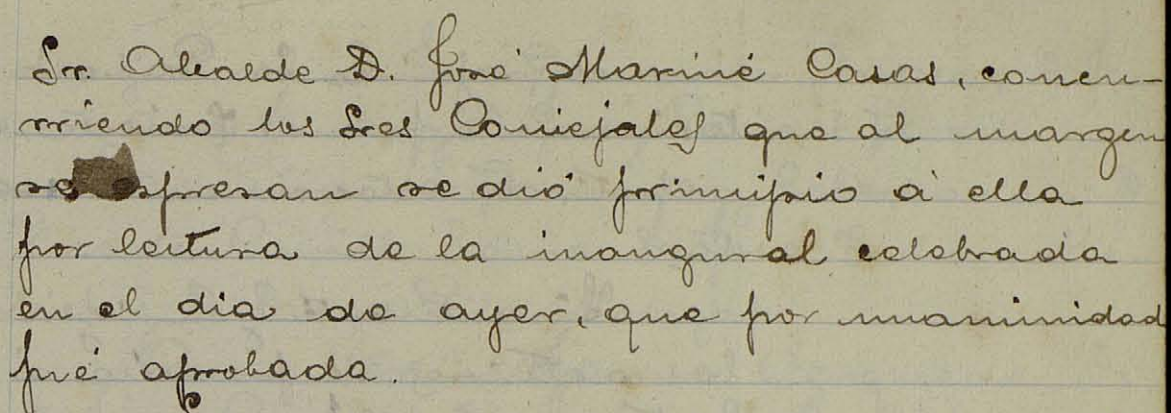 Sr. Alcalde D. José Mariné Casas, concu-
rriendo los Sres Concejales que al margen
se espresan se dió principio á ella
por lectura de la inaugural celebrada
en el dia de ayer, que por unanimidad
fué aprobada.